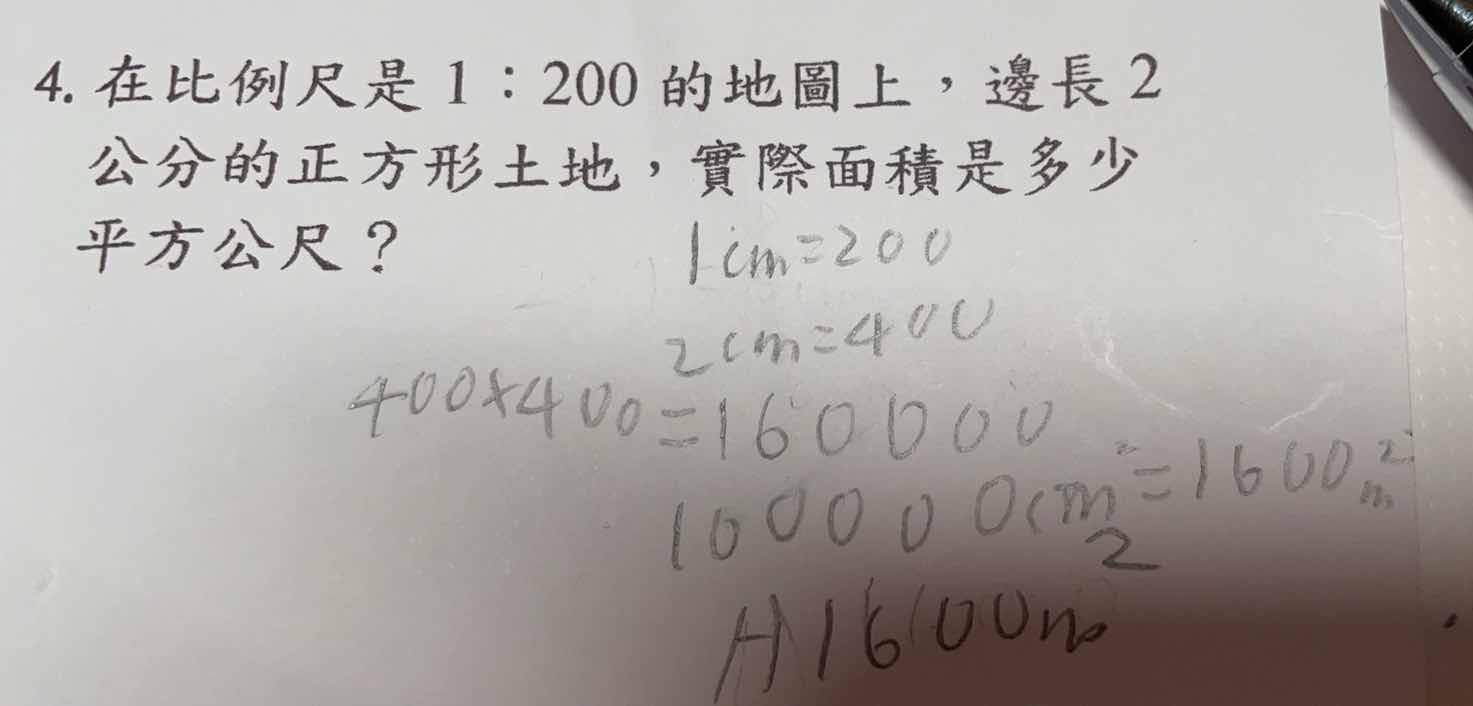 4. 在比例尺是 1：200 的地圖上，邊長 2
公分的正方形土地，實際面積是多少
平方公尺？
1cm=200
2cm=400
400×400=160000
160000cm²=1600m²
A1600m²